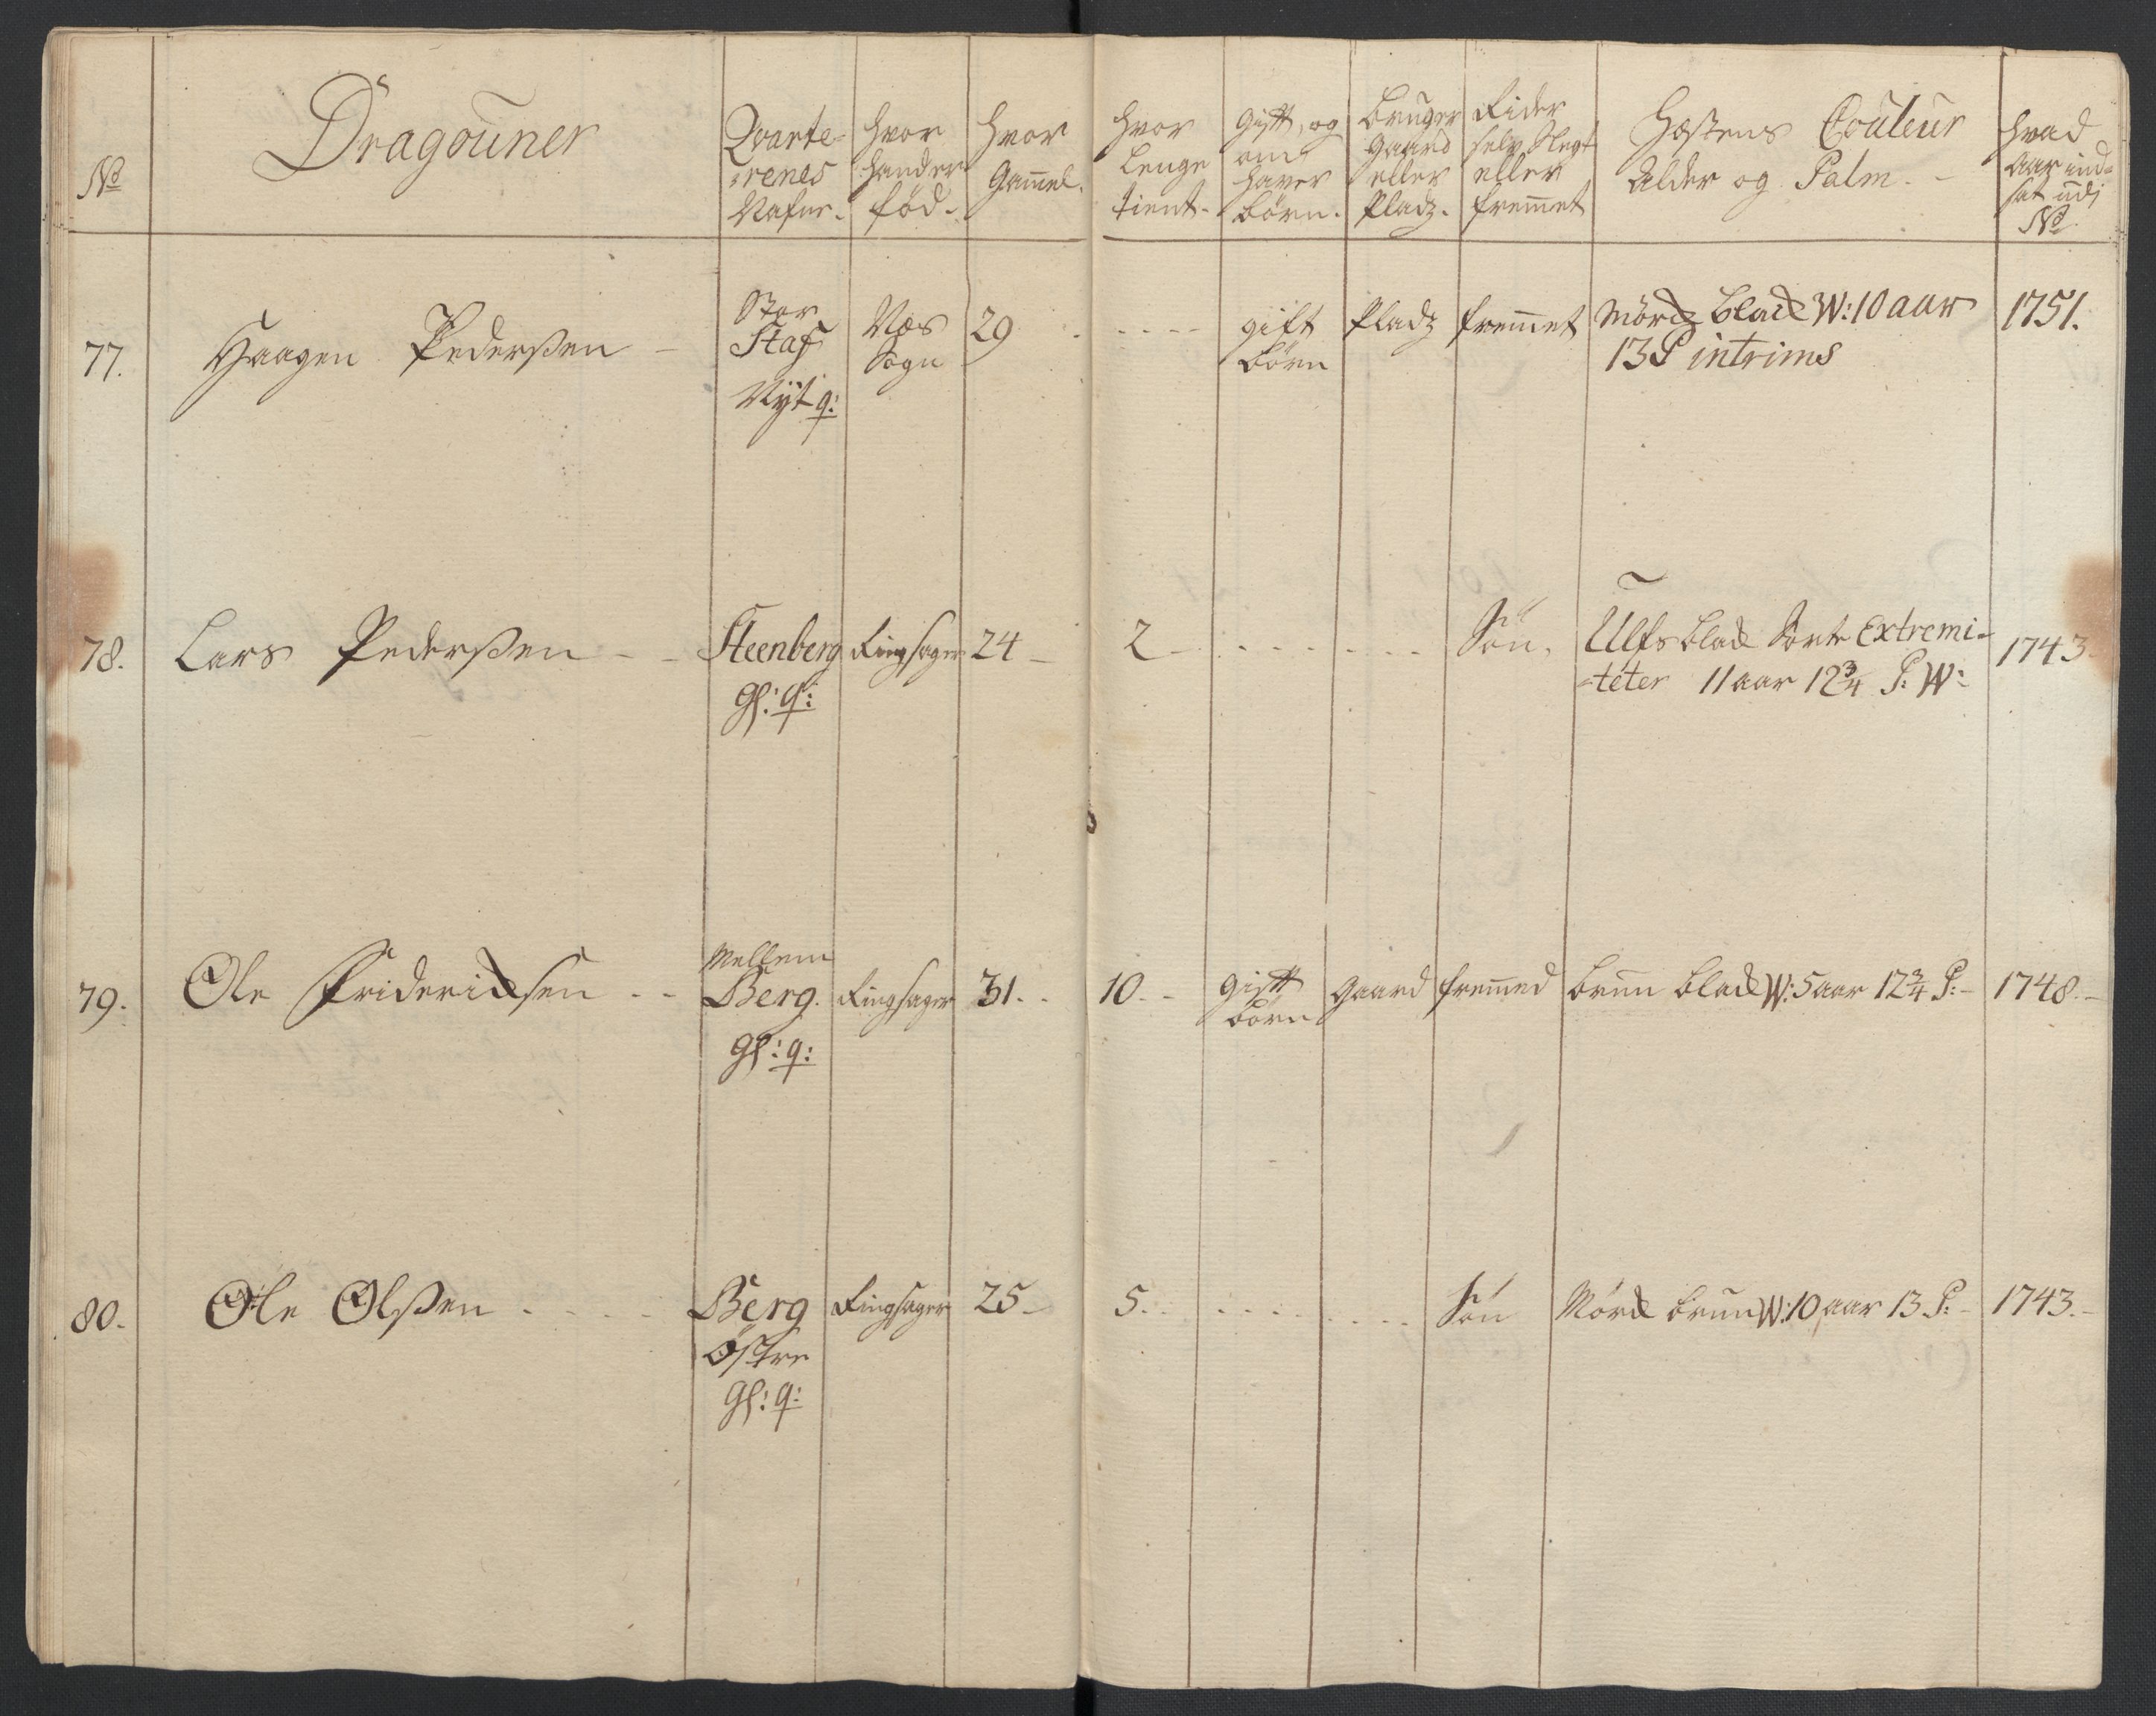 No
Dragouner
Qvarte-
-renes
Nafne.
hvor
hand er
fød.
hvor
Gam̄el.
hvor
Lenge
tient.
Gift, og
om
haver
børn.
bruger
Gaard
eller
Pladz.
Rider
selv Slegt
eller
frem̄et
Hæstens Couleur
Alder og Palm.
hvad
Aar ind-
sat udj
No
77.
Haagen Pederßen
Stor
Staf
Nÿt q:
Næs
Sogn
29
gift
børn
Pladz
frem̄et
Mörck black W: 10 aar
13 P intrims
1751.
78.
Lars Pederßen
Steenberg
Gl: q:
Ringsager
24
2
Søn.
Ulfs black Sorte Extremi-
-teter 11 aar 12¾ P: W:
1743.
79.
Ole Fridericksen
Mellem
Berg.
Gl: q:
Ringsager
31.
10.
gift
børn
gaard
frem̄ed
brun black W: 5 aar 12¾ P:
1748.
80.
Ole Olßen
Berg
Østre
Gl: q:
Ringsager
25
5.
Søn
Mörck brun W: 10 aar 13 P:
1743.